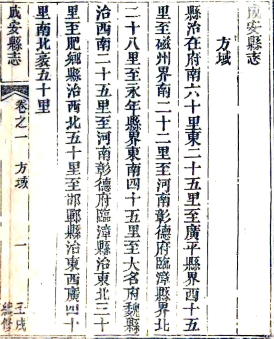 成安縣志
方域
縣治在府南六十里東二十五里至廣平縣界西十五
里至磁州界南二十二里至河南彰德府臨漳縣界北
二十八里至永年縣界東南四十五里至大名府魏縣
治西南二十五里至河南彰德府臨漳縣治東北三十
里至肥鄉縣治西北五十里至邯鄲縣治東西廣四十
里南北袤五十里
成安縣志
卷之一
方域
一
壬戌
續修